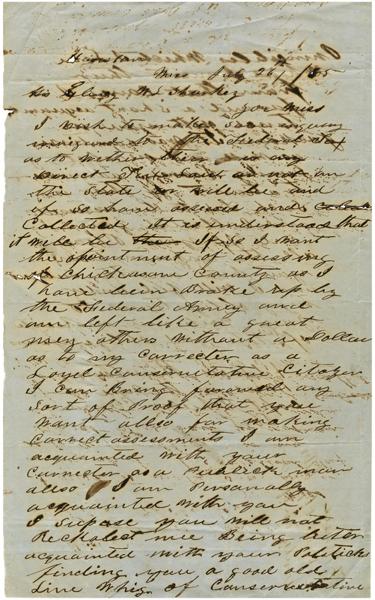 Miss July 26th / 65
his Elency W. L. Sharkey
gov Miss
I wish to make Some enquiry
in regard to the Federal Tax
as to wether there is any
Direct Tax on
the State or will be and
if So how assesed and
Collected it is understood that
it will be If So I want
the opointment of assessing
of Chickasaw County as I
have been Broke up by
the Federal Army and
am left like a great
meny others without a Dollar
as to my Carrecter as a
Loyel Conservative Citizen
I can Bring forward any
Sort of Proof that you
want allso for making
Correct assessments I am
acquainted with your
Carrecter as a Publick man
allso I am Personally
acquainted with you
I Supose you will not
Recholect mee Being better
acquainted with your Publick
finding you a good old
Line Whig of Conservative